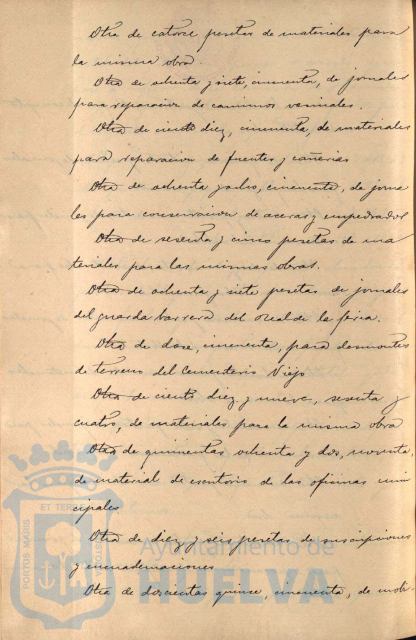 Otra de catorce pesetas de materiales para
la misma obra.
Otra de ochenta y siete, cincuenta, de jornales
para reparacion de caminos vecinales.
Otra de ciento diez, cincuenta, de materiales
para reparacion de fuentes y cañerias
Otra de ochenta y ocho, cincuenta, de jorna
les para conservacion de aceras y empedrados
Otra de sesenta y cinco pesetas de ma
teriales para las mismas obras.
Otra de ochenta y siete pesetas de jornales
del guarda barrera del Real de la feria.
Otra de doce, cincuenta, para desmontes
de terreno del Cementerio Viejo
Otra de ciento diez y nueve, sesenta y
cuatro, de materiales para la misma obra
Otra de quinientas ochenta y dos, noventa,
de material de escritorio de las oficinas mu
cipales
Otra de diez y seis pesetas de suscripciones
y encuadernaciones
Otra de doscientas quince, cincuenta, de mobi-
PORTUS MARIS ET TERRAE CUSTODIA
Ayuntamiento de
HUELVA